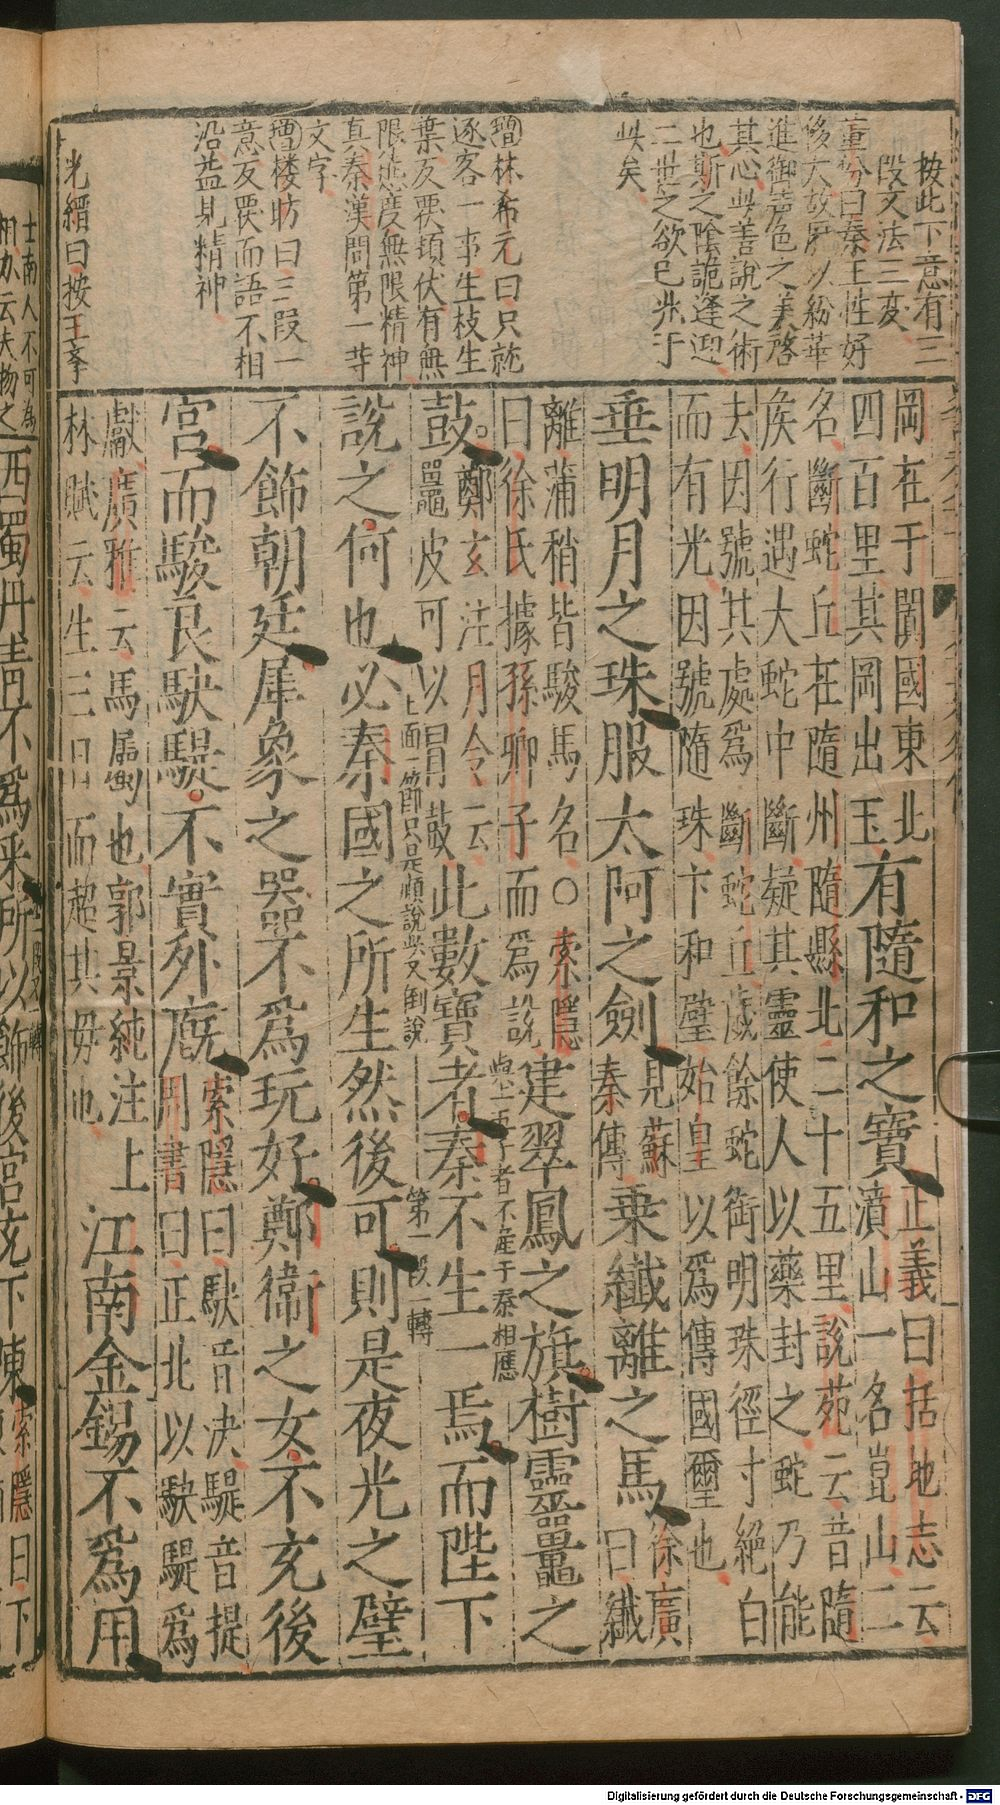 按此下意有三
段文法三変
董份曰秦王性好
侈大故歷以紛華
進御声色之美啓
其心此善說之術
也斯之陰詭逢迎
二世之欲已兆于
此矣
增林希元曰只就
逐客一事生枝生
葉反覆頓伏有無
限態度無限精神
真秦漢間第一等
文字
增楼昉曰三段一
意反覆而語不相
沿益見精神
光縉曰按王孝
岡在于闐國東北
四百里其岡出玉
有隨和之寶
正義曰括地志云
濆山一名崑山二
名斷蛇丘在隨州隨縣北二十五里說苑云昔隨
侯行遇大蛇中斷疑其靈使人以藥封之蛇乃能
去因號其處為斷蛇丘歲餘蛇銜明珠徑寸絕白
而有光因號隨珠卞和璧始皇以為傳國璽也
垂明月之珠服太阿之劍
見蘇
秦傳
乘纖離之馬
徐廣
曰纖
離蒲稍皆駿馬名○索隱
曰徐氏據孫卿子而為說
建翠鳳之旗樹靈鼉之
與上五子者不産于秦相應
鼓
鄭玄注月令云
鼉皮可以冒鼓
此數寶者秦不生一焉而陛下
上面一節只是順說此又倒說
第一段一轉
說之何也必秦國之所生然後可則是夜光之璧
不飾朝廷犀象之器不為玩好鄭衛之女不充後
宮而駿良駃騠不實外廄
索隱曰駃音決騠音提
周書曰正北以駃騠為
獻廣雅云馬屬也郭景純注上
林賦云生三日而超其母也
江南金錫不為用
士南人不可為
西蜀丹青不為采所以飾後宮充下陳
索隱曰下
Digitalisierung gefördert durch die Deutsche Forschungsgemeinschaft - DFG